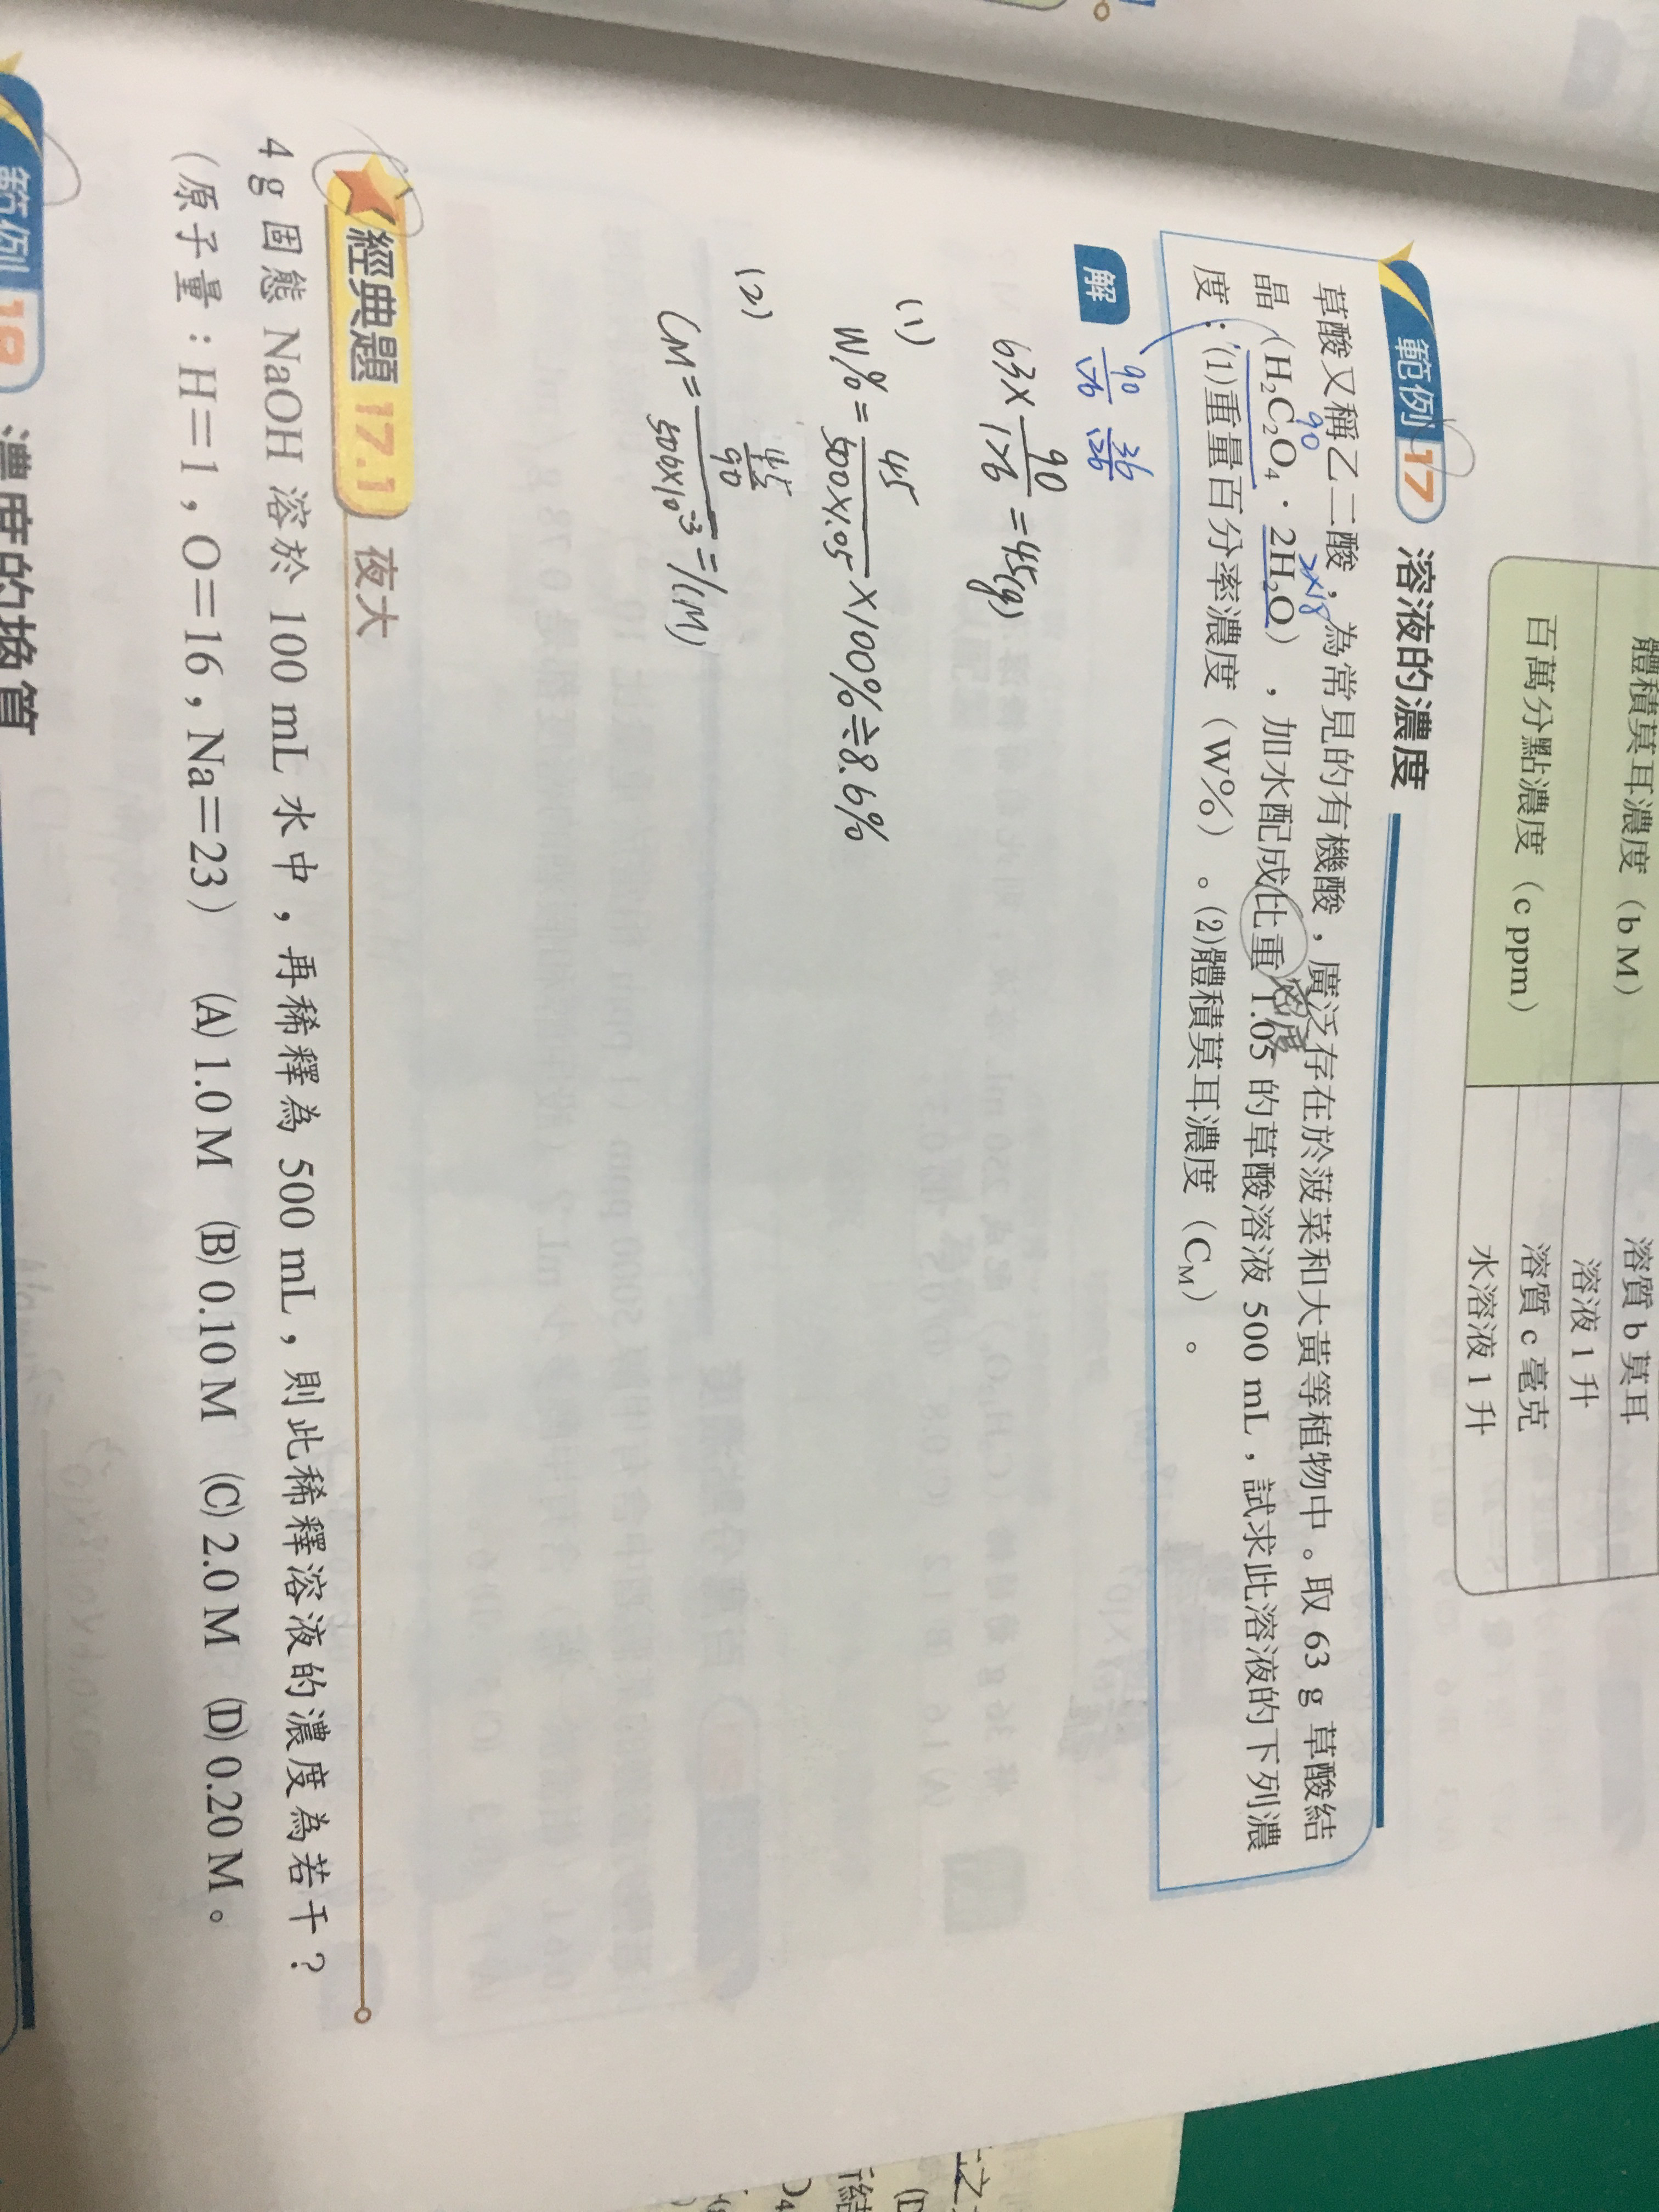 體積莫耳濃度（b M）
溶質 b 莫耳
溶液 1 升
百萬分點濃度（c ppm）
溶質 c 毫克
水溶液 1 升
範例 17 溶液的濃度
草酸又稱乙二酸，為常見的有機酸，廣泛存在於菠菜和大黃等植物中。取 63 g 草酸結
90
2×18
密度
晶（H₂C₂O₄．2H₂O），加水配成比重 1.05 的草酸溶液 500 mL，試求此溶液的下列濃
度：(1)重量百分率濃度（W%）。(2)體積莫耳濃度（C_M）。
解
90/126 36/126
63×90/126=45(g)
(1)
W%=45/500×1.05×100%≒8.6%
(2)
CM=45/90/500×10⁻³=1(M)
經典題 17.1 夜大
4 g 固態 NaOH 溶於 100 mL 水中，再稀釋為 500 mL，則此稀釋溶液的濃度為若干？
（原子量：H＝1，O＝16，Na＝23） (A) 1.0 M (B) 0.10 M (C) 2.0 M (D) 0.20 M。
範例 18 濃度的換算